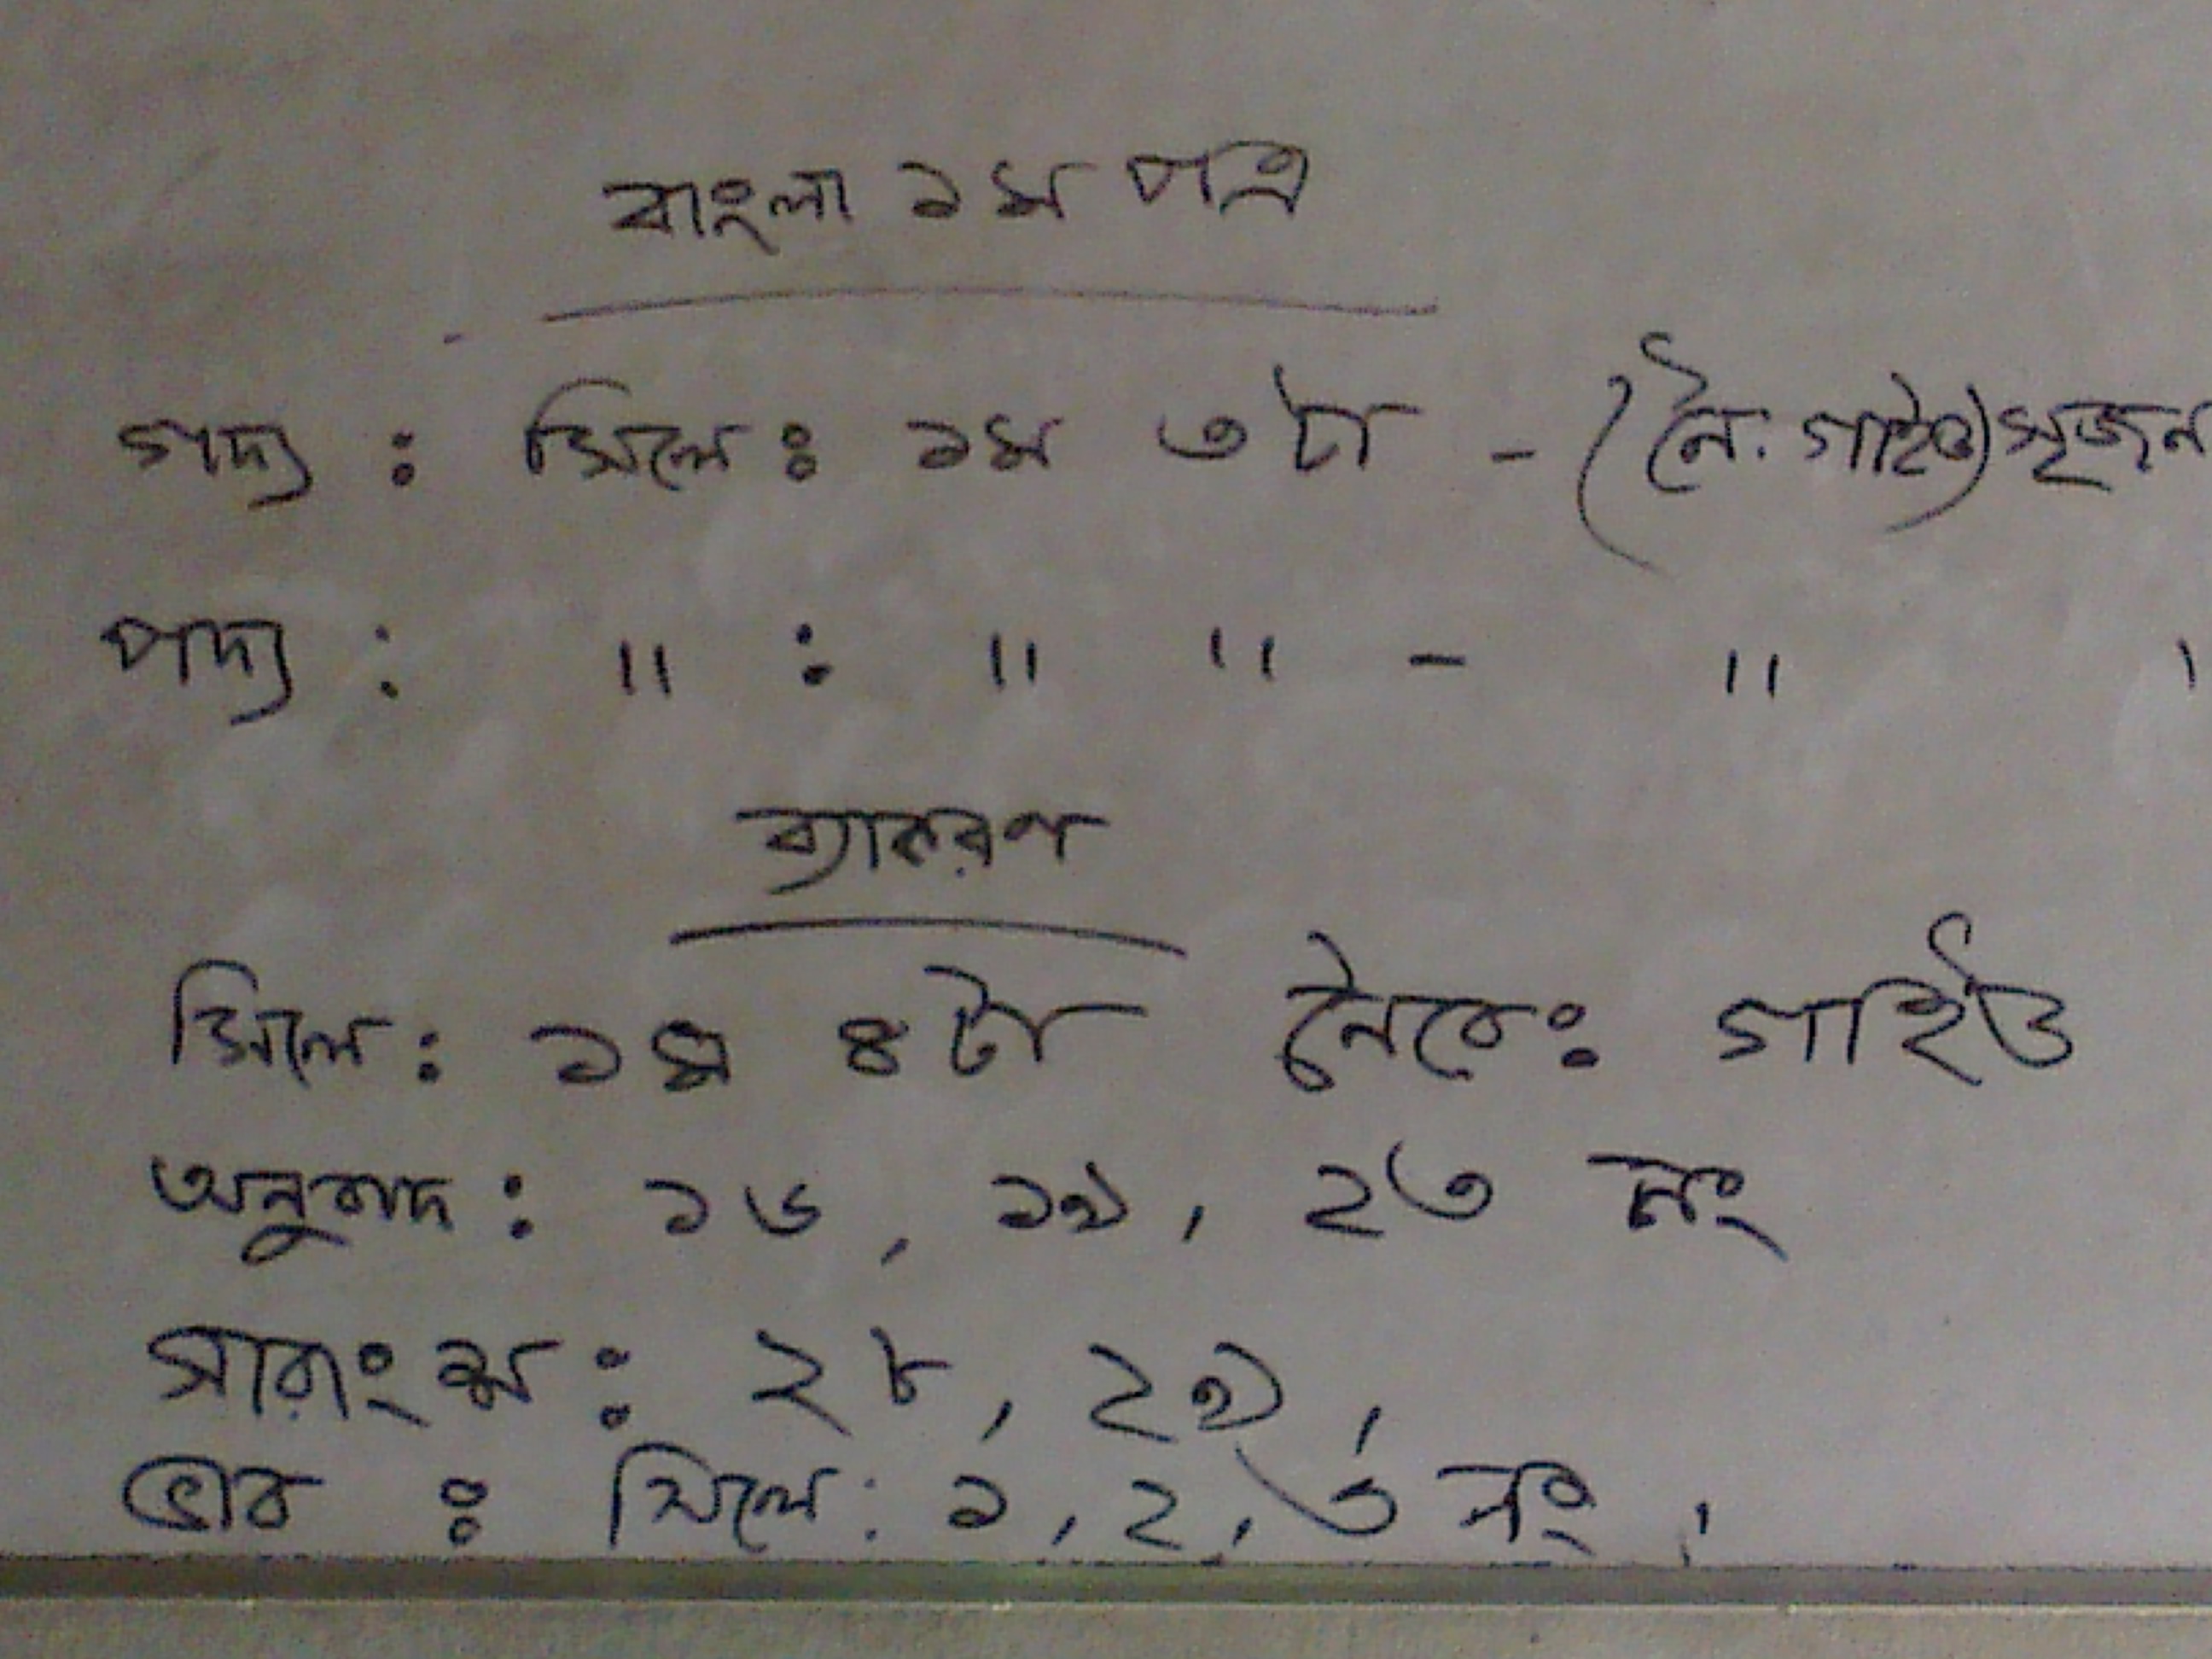 বাংলা ১ম পত্র
গদ্য : সিলে: ১ম ৩টা - (নৈ. গাইড) সৃজন
পদ্য : " : " " - "
ব্যাকরণ
সিলে: ১ম ৪টা নৈবে: গাইড
অনুবাদ : ১৬, ১৯, ২৩ নং
সারাংশ : ২৮, ২৯,
ভাব : সিলে: ১, ২, ৩ নং,